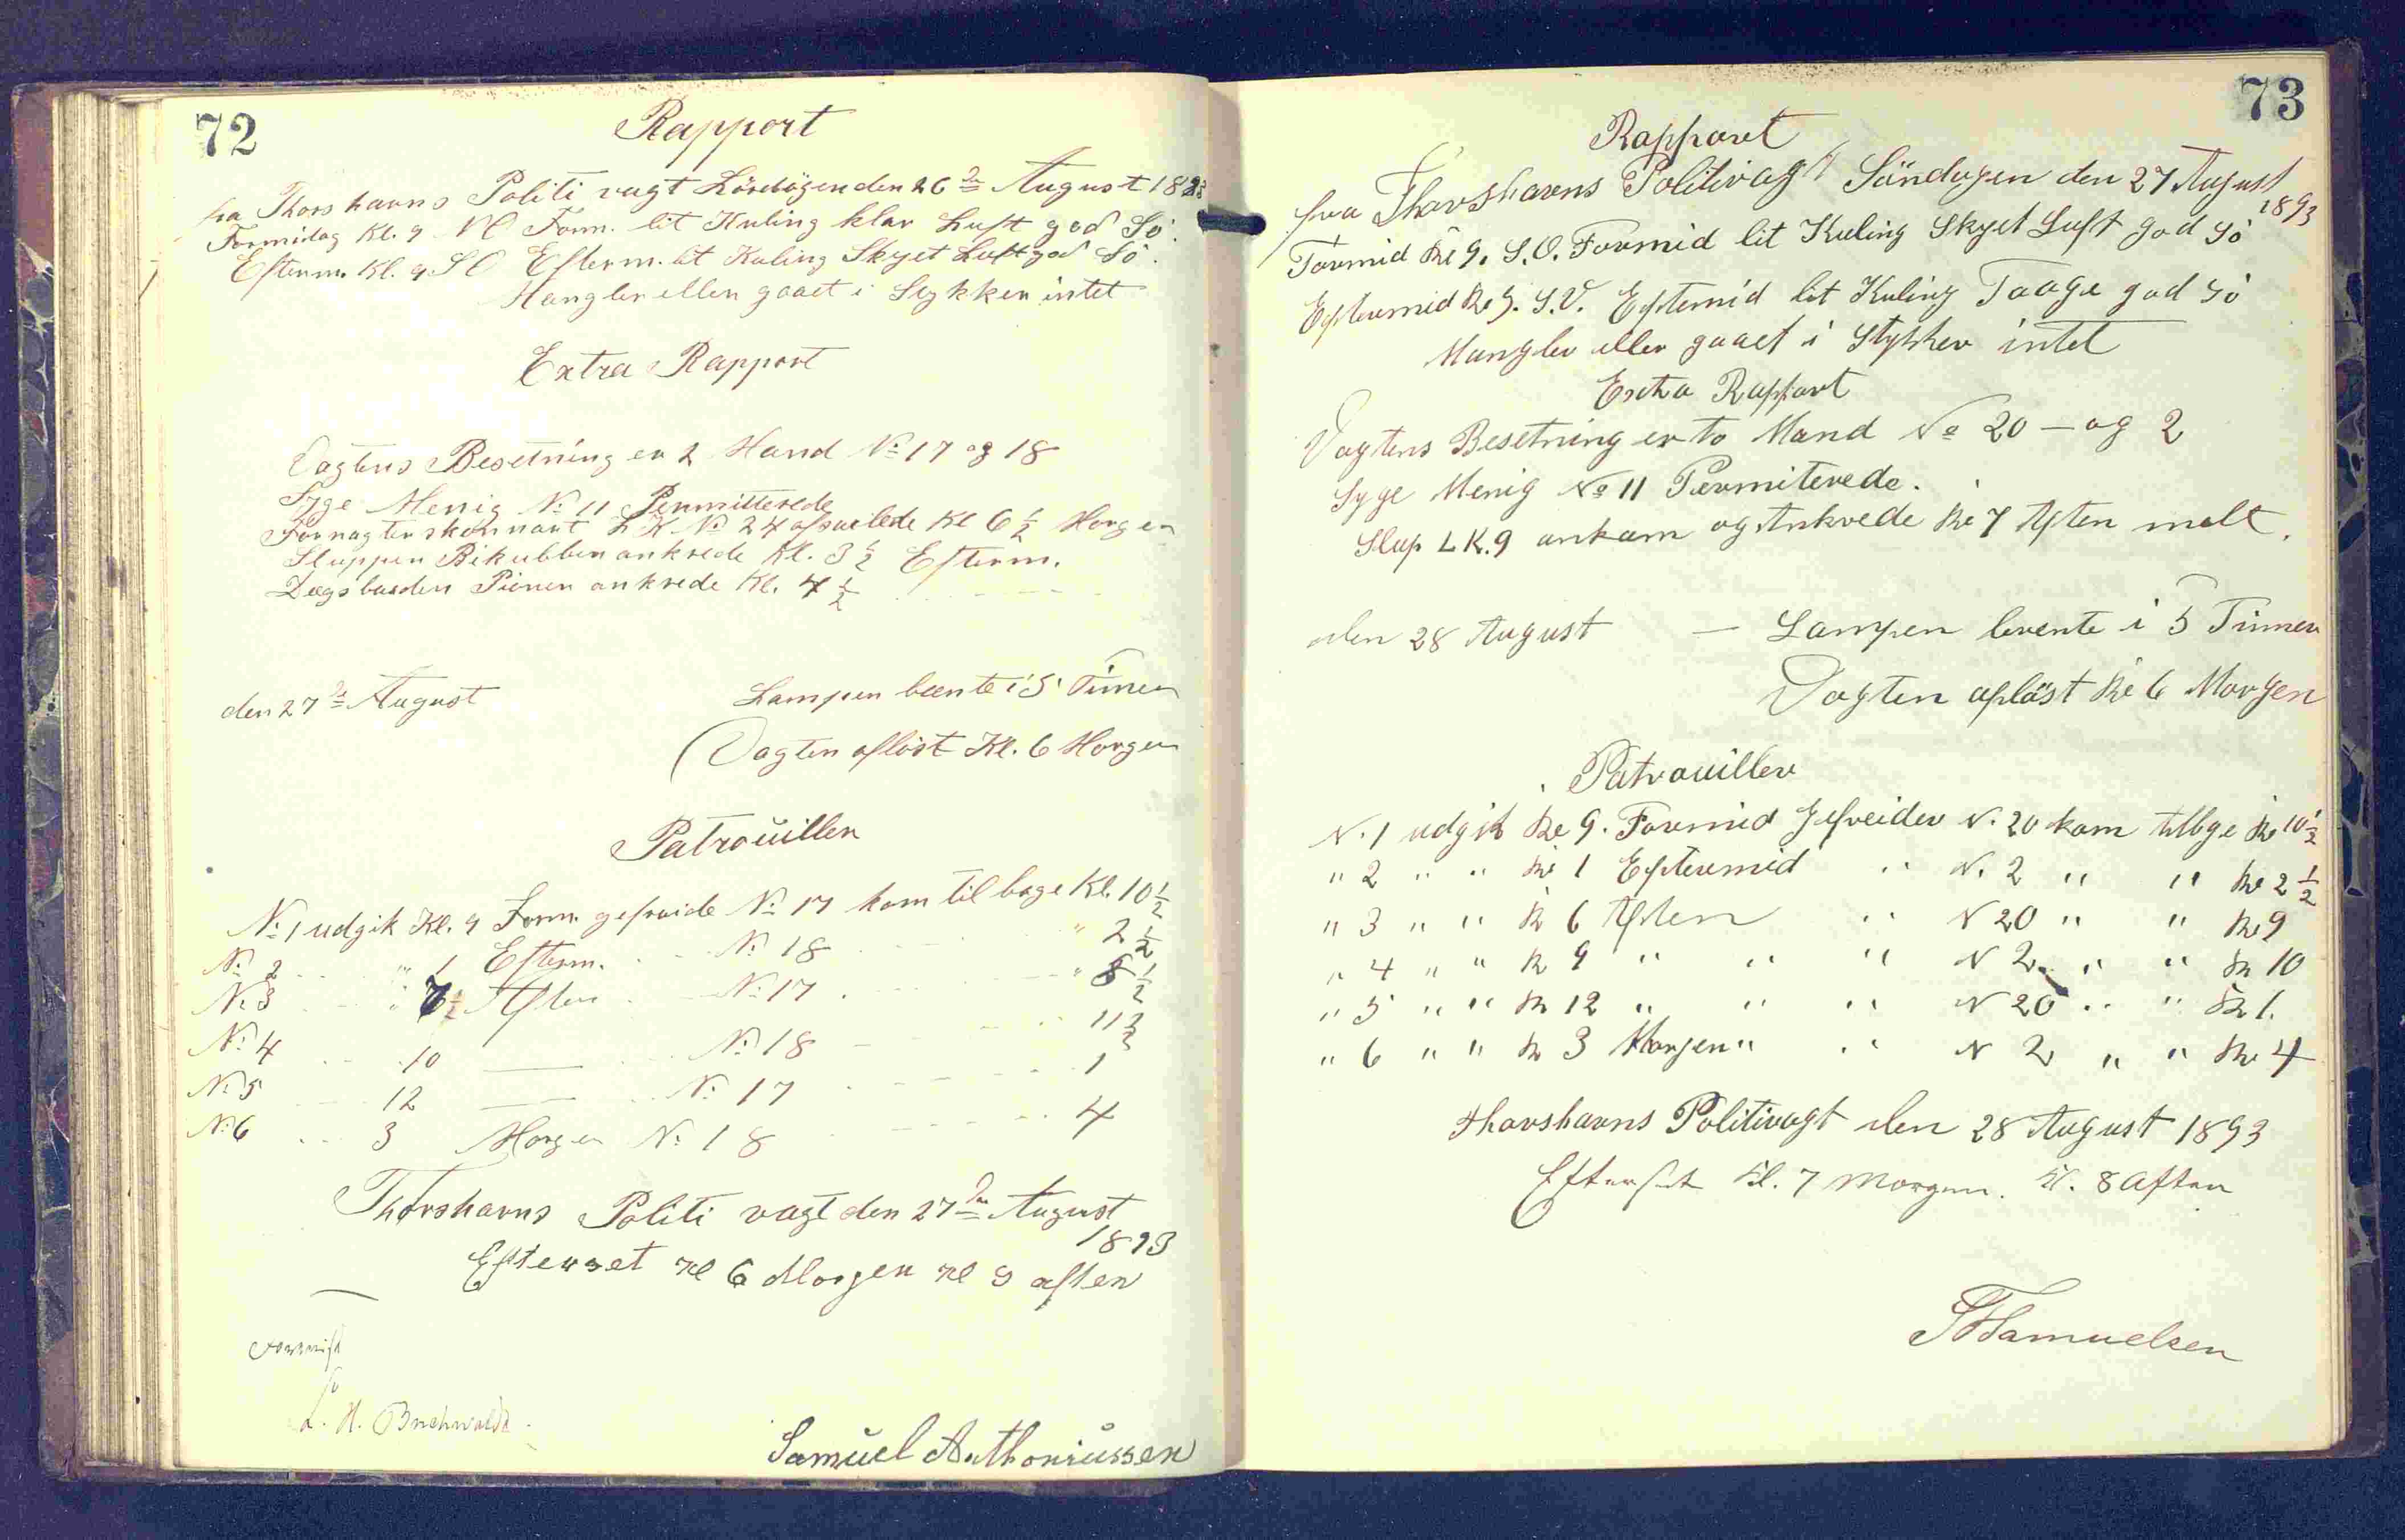 72
Rapport
fra Thorshavns Politi vagt Löverdagen den 26de August 1893
Formidag Kl. 9 NO Form. lit Kuling klar Luft god Sö.
Efterm. Kl. 9 SO Efterm. lit Kuling Skyet Luft god Sö.
Mangler eller gaaet i Stykker intet
Extra Rapport
Vagtens Besetning er 2 Mand No 17 og 18
Syge Menig No 11 Permitterede
skonnart L K No 24 afseilede Kl 6 1/2 Morgen
Sluppen Bikubben ankrede Kl. 3 1/2 Efterm.
ankrede Kl. 4 1/2
den 27de August
Lampen brente i 5 Timer
Vagten aflöst Kl. 6 Morgen
Patrouiller
No 1 udgik Kl. 9 Form. gefreide No 17 kom tilbage Kl. 10 1/2
No 2 " 1 Efterm. No 18 " 2 1/2
No 3 " 7 1/2 Aften No 17 " 8 1/2
No 4 10 — No 18 11 1/2
No 5 12 — No 17 1
No 6 3 Morgen No 18 4
Thorshavns Politi vagt den 27de August
1893
Efterset Kl 6 Morgen Kl 9 aften
L. H. Buchwaldt
Samuel Anthoniussen
73
Rapport
fra Thorshavns Politivagt Söndagen den 27 August
1893
Formid Kl 9. S.O. Formid lit Kuling Skyet Luft god Sö
Eftermid Kl 9. S.V. Eftemid lit Kuling Taage god Sö
Mangler eller gaaet i Stykker intet
Extra Rapport
Vagtens Besetning er to Mand No 20 — og 2
Syge Menig No 11 Permiterede.
Slup LK.9 ankom og Ankrede Kl 7 Aften melt.
den 28 August — Lampen brente i 5 Timer
Vagten aflöst Kl 6 Morgen
Patrouiller
N. 1 udgik Kl 9. Formid Gefreider N. 20 kom tilbge Kl 10 1/2
" 2 " " Kl 1 Eftermid " N. 2 " " Kl 2 1/2
" 3 " " Kl 6 Aften " N 20 " " Kl 9
" 4 " " Kl 9 " " " N 2 " " Kl 10
" 5 " " Kl 12 " " " N 20 " " Kl 1.
" 6 " " Kl 3 Morgen " " N 2 " " Kl 4
Thorshavns Politivagt den 28 August 1893
Efterset Kl. 7 Morgen. Kl. 8 Aften
Samuelsen